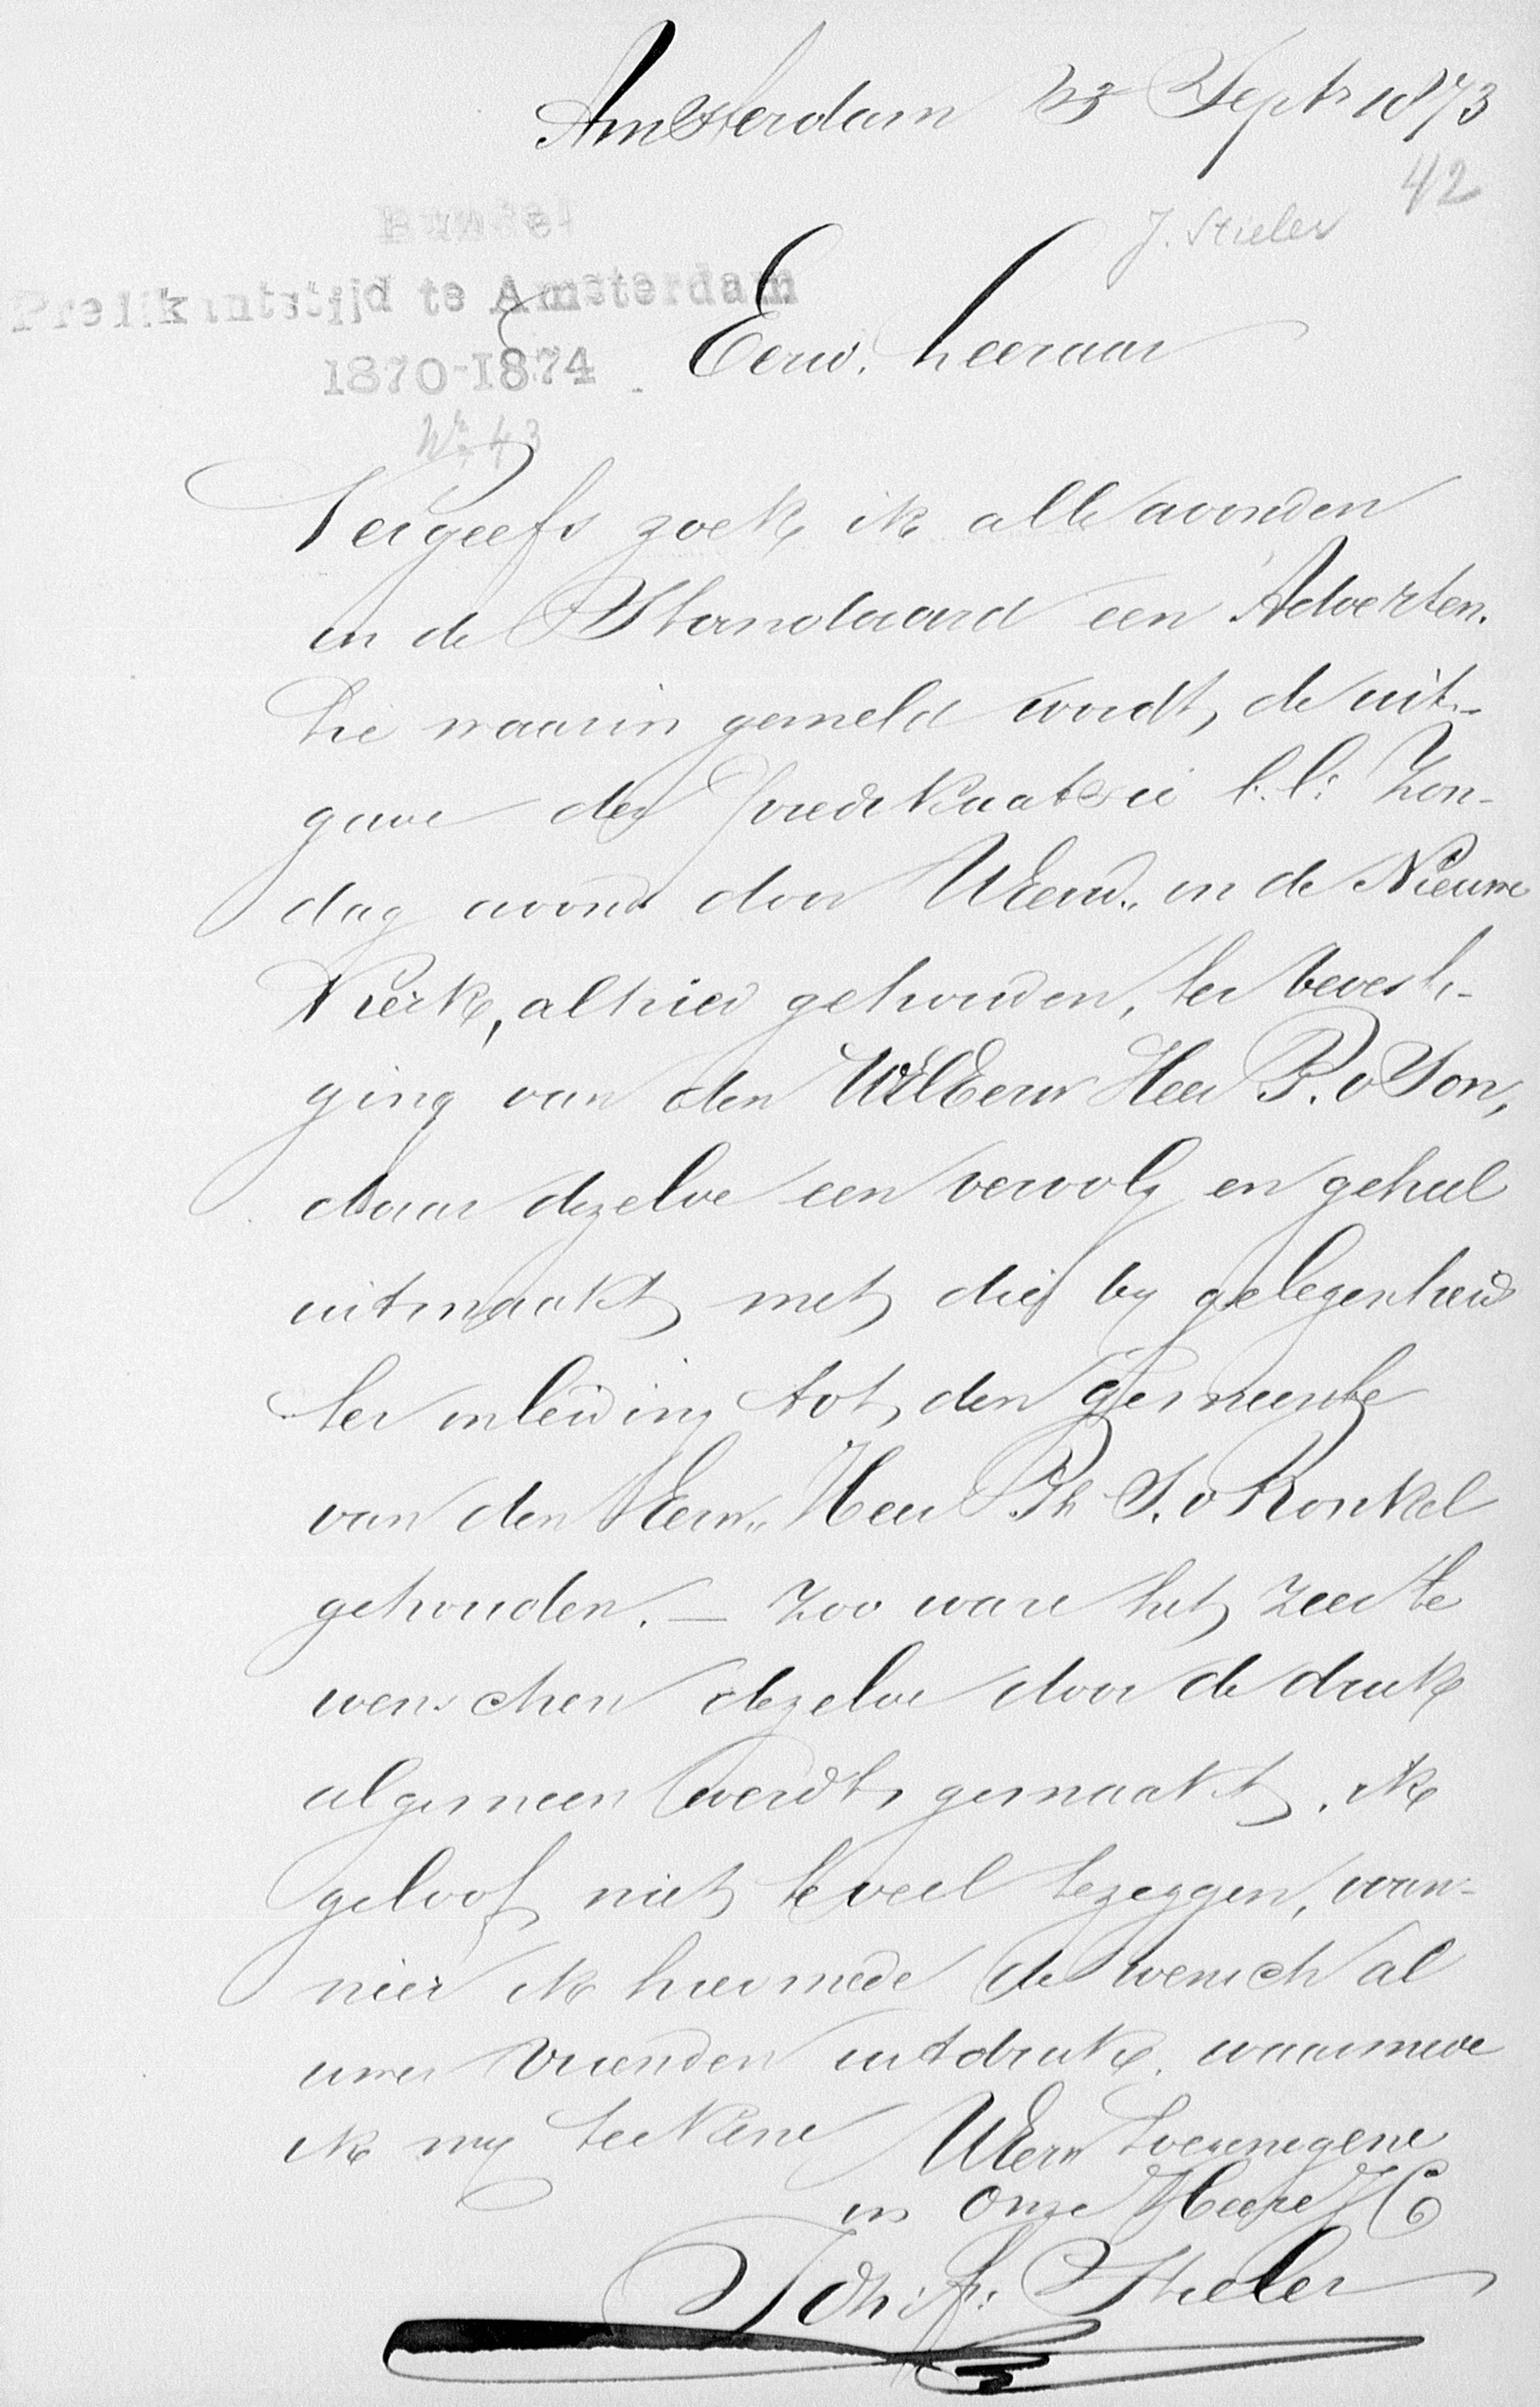 Amsterdam 23 Septr 1873
42
J. Stieler
Bundel
Predikantstijd te Amsterdam
1870-1874
No 43
Eerw. Leeraar
Vergeefs zoek ik alle avonden
in de Standaard een Adverten-
tie waarin gemeld wordt, de uit-
gave der predikaatsie l.l: Zon-
dag avond door UEerw. in de Nieuwe
Kerk, alhier gehouden, ter bevesti-
ging van den WelEerw Heer P. v Son,
daar dezelve een vervolg en geheel
uitmaakt met die by gelegenheid
ter inleiding tot den gemeente
van den Eerw. Heer Ph S. v Ronkel
gehouden. — Zoo ware het zeer te
wenschen dezelve door de druk
algemeen werdt gemaakt. ik
geloof niet te veel te zeggen, wan-
neer ik hiermede de wensch al
uwer vrienden uitdruk. waarmede
ik my teekene UEerw toegenegene
in onze Heere JC
Joh: F: Stieler